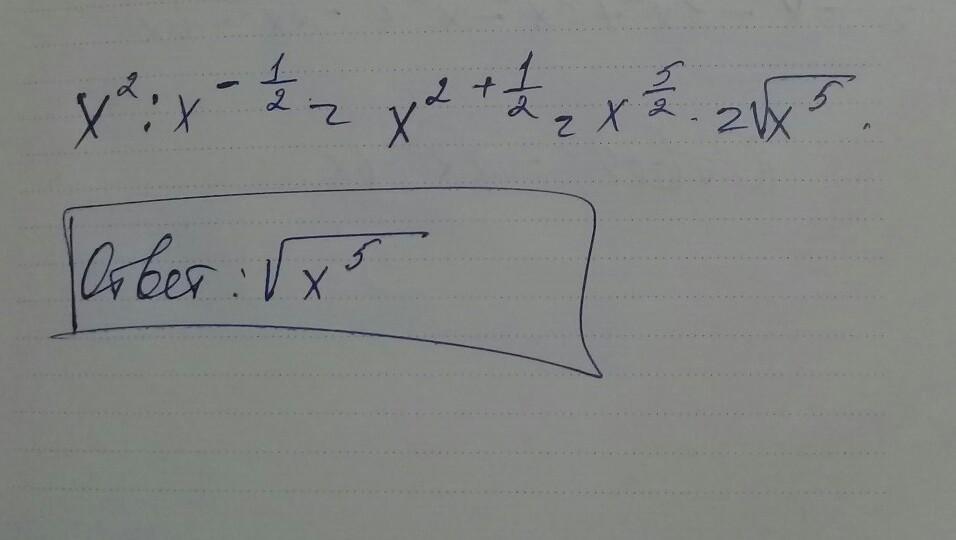 x² : x^(-1/2) = x^(2+1/2) = x^(5/2). = √x⁵.
Ответ: √x⁵